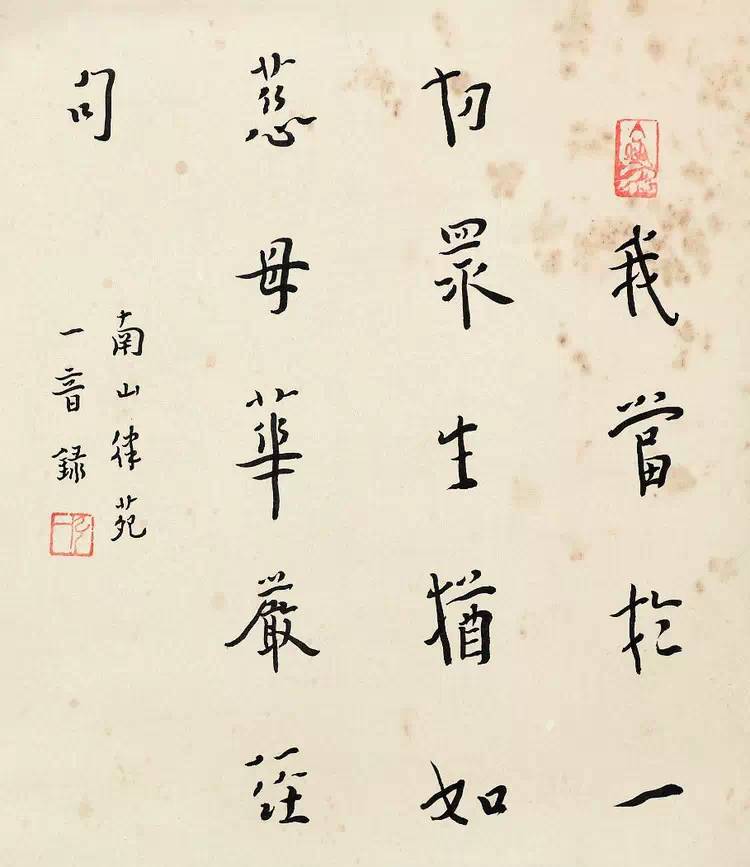 我當於一
切眾生猶如
慈母華嚴經
句
南山律苑
一音錄
弘一